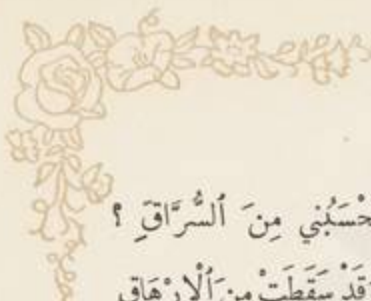 حْسَبُنِي مِنَ ٱلسُّرَّاقِ ؟
قَدْ سَقَطَتْ مِنَ ٱلْإِرْهَاقِ